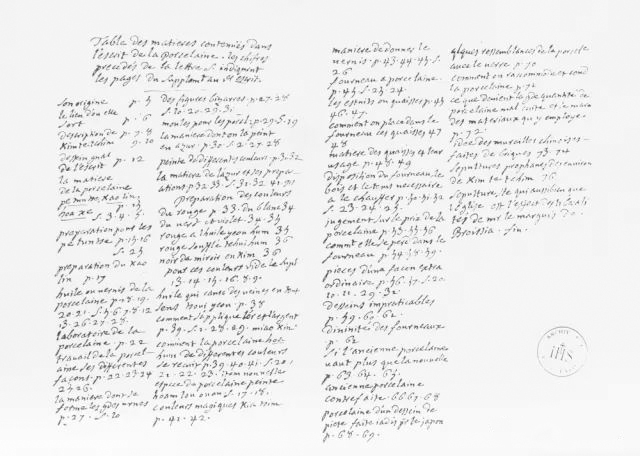 Table des matieres contenües dans
l'escrit de la porcelaine. les chifres
precedés de la lettre S. indiquent
les pages du supplant au Mt escrit.
Son origine p. 5
le lieu d'ou elle
sort p. 6
description de p. 7. 8
Kimtetchim 9. 10
dessein qual
de l'escrit p. 12
la matiere
de la porcelaine
petuntse, Kaolin
hoa xe p. 15
S. 3. 4. 5
preparation pour les
petuntse p. 15. 16
S. 25
preparation du Kao
lin p. 17
huile ou vernis de la
porcelaine p. 18. 19.
20. 21. S. 6. 7. 8. 12
13. 26. 27. 28
laboratoire de la
porcelaine p. 22
travail de la porcel
aine des differentes
façons. p. 22. 23. 24
25. 26.
la maniere dont se
forme les gdes urnes
p. 27. S. 20
Des figures binaires. p. 27. 28
S. 20. 21. 23. 31.
moules pour les porcel. p. 29. S. 19
la maniere dont on la peint
en azur. p. 30. S. 2. 27. 28
peinte de differents couleurs p. 31. 32
la matire de l'azur et ses prepar-
ations p. 32. 33. S. 31. 32. 41. 91
Preparation des couleurs
du rouge p. 33. du blanc 34
du verd et violet. 34. 35
rouge a l'huile yeou hum 35
rouge soufflé tchuihum 36
noir de miroir en Kim 36
pour ces couleurs Vide le supl
13. 14. 15. 16. 8. 9.
huile qui cause des veines en Kat
sens tsoui yeou. p. 38
comment s'applique l'or et l'argent
p. 39. S. 1. 28. 29. miao Kin
convient la porcelaine hot
hum de diferentes couleurs
se recuit p. 39. 40. 41. S. 20.
21. 22. 23. Item nouvelle
espece de porcelaine peinte
hoam lou ouan S. 17. 18.
couleurs magiques Kia tsim
p. 41. 42.
maniere de donner le
vernis. p. 43. 44. 45. S.
26
fourneau a porcelaine
p. 45. S. 23. 24.
les estuits ou quaisses p. 45
46. 47.
comment on place dans le
fourneau ces quaisses 47
48
matiere des quaisses et leur
usage. p. 48. 49
disposition du fourneau, le
bois et le tems necessaire
a le chauffer p. 50. 51. 52
S. 23. 24. 25.
jugement sur le prix de la
porcelaine p. 53. 55. 56
commt elle se perd dans le
fourneau p. 54. 58. 59.
pieces d'une façon extra
ordinaire p. 56. 57. S. 20
10. 11. 29. 32.
desseins impraticables
p. 59. 60. 61.
divinité des fourneaux
p. 62
si l'ancienne porcelaine
vaut plus que la nouvelle
p. 63. 64. 65.
ancienne porcelaine
contrefaite. 66. 67. 68
porcelaine d'un dessein de
piece faite iadis pr le japon
p. 68. 69.
qlques ressemblances de la porcele
avec le verre. p. 70
comment on raccommode et coud
la porcelaine p. 71
ce que devient la gde quantité de
porcelaine mal cuite et le main
des materiaux qu'y employe.
p. 72.
idée des murailles chinoises
faites de briques 73. 74
Sepultures prophanes des environ
de Kim te tchim 76
sepulture, le qui aussi bien que
l'eglise est l'effect des liberali
tés de mr le marquis de
Broissia. fin.
ARCHIV
IHS